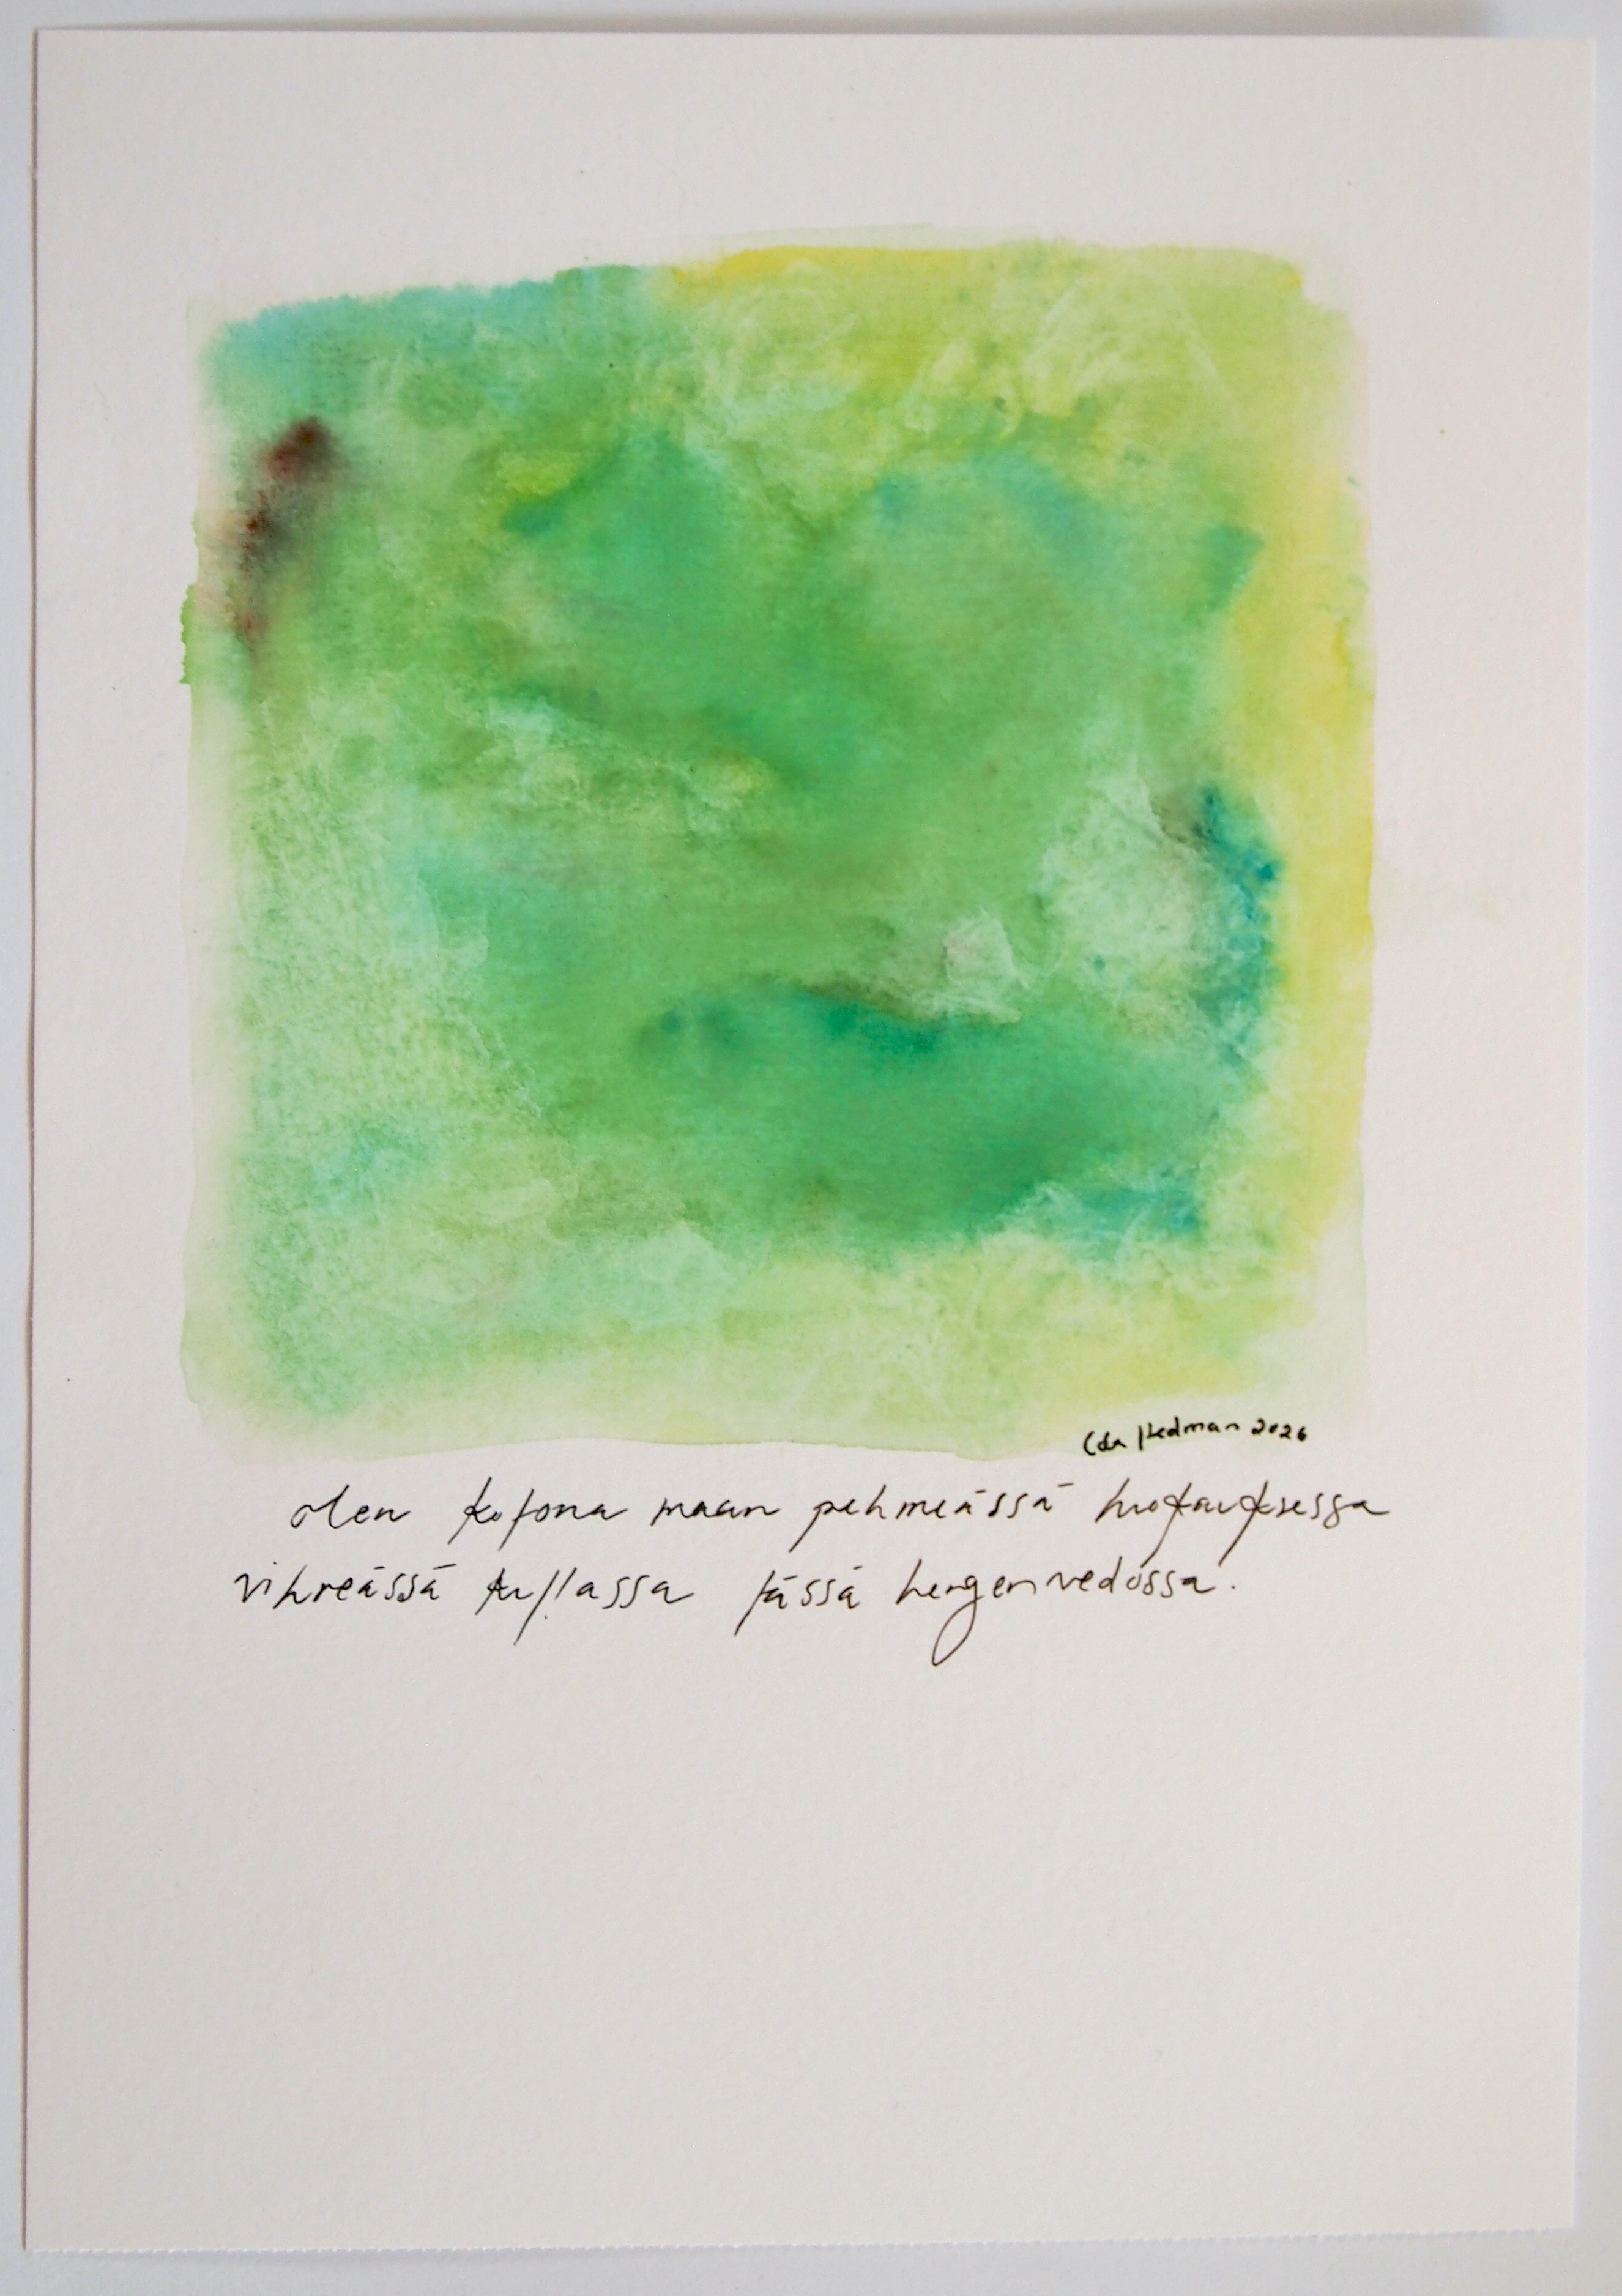 Ida Hedman 2026
olen kotona maan pehmeässä huokauksessa
vihreässä kullassa tässä hengenvedossa.